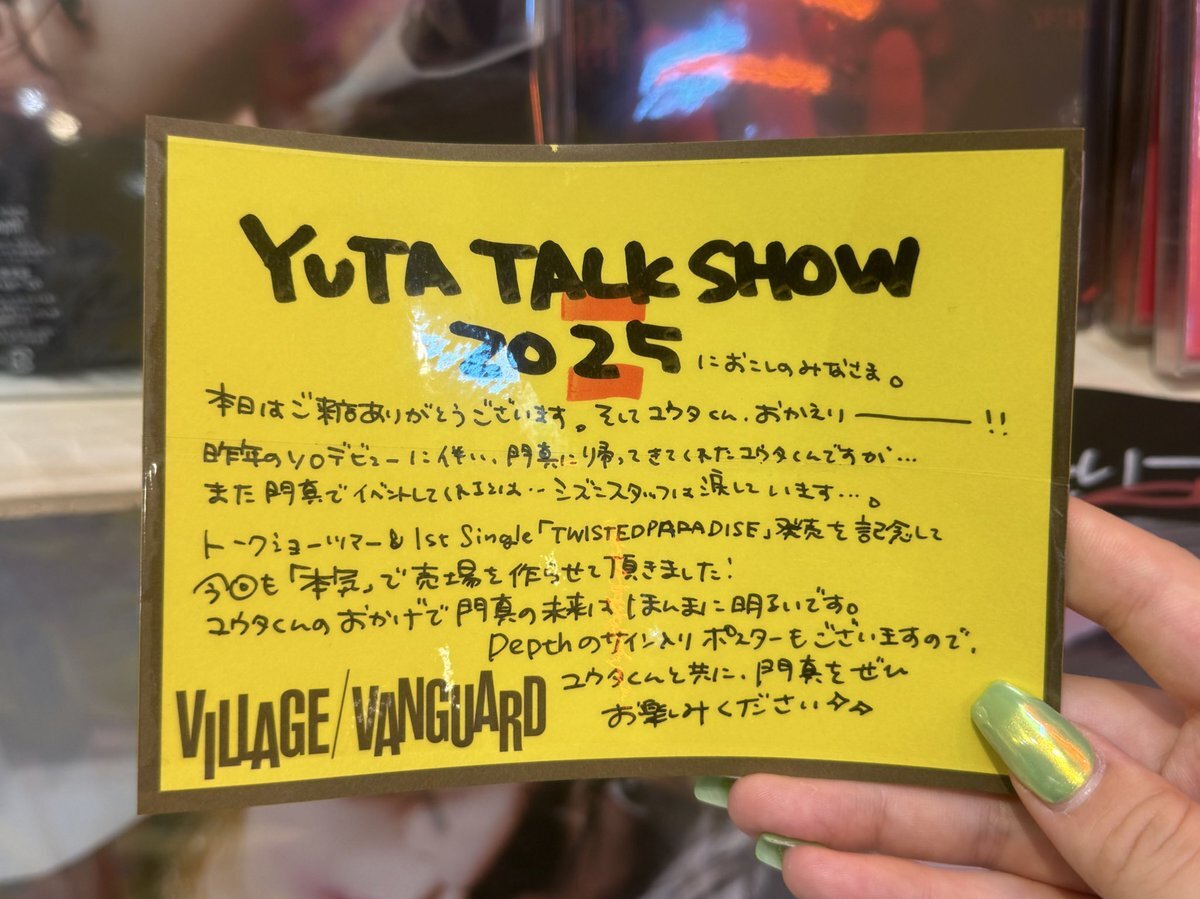 YUTA TALK SHOW
2025 におこしのみなさま。
本日はご来店ありがとうございます。そしてユウタくん、おかえりー!!
昨年のソロデビューに伴い、門真に帰ってきてくれたユウタくんですが…
また門真でイベントしてくれるとは…シズニスタッフは涙しています…。
トークショーツアー& 1st Single「TWISTED PARADISE」発売を記念して
今回も「本気」で売場を作らせて頂きました!
ユウタくんのおかげで門真の未来はほんまに明るいです。
Depthのサイン入りポスターもございますので、
ユウタくんと共に、門真をぜひ
お楽しみください☆☆
VILLAGE/VANGUARD